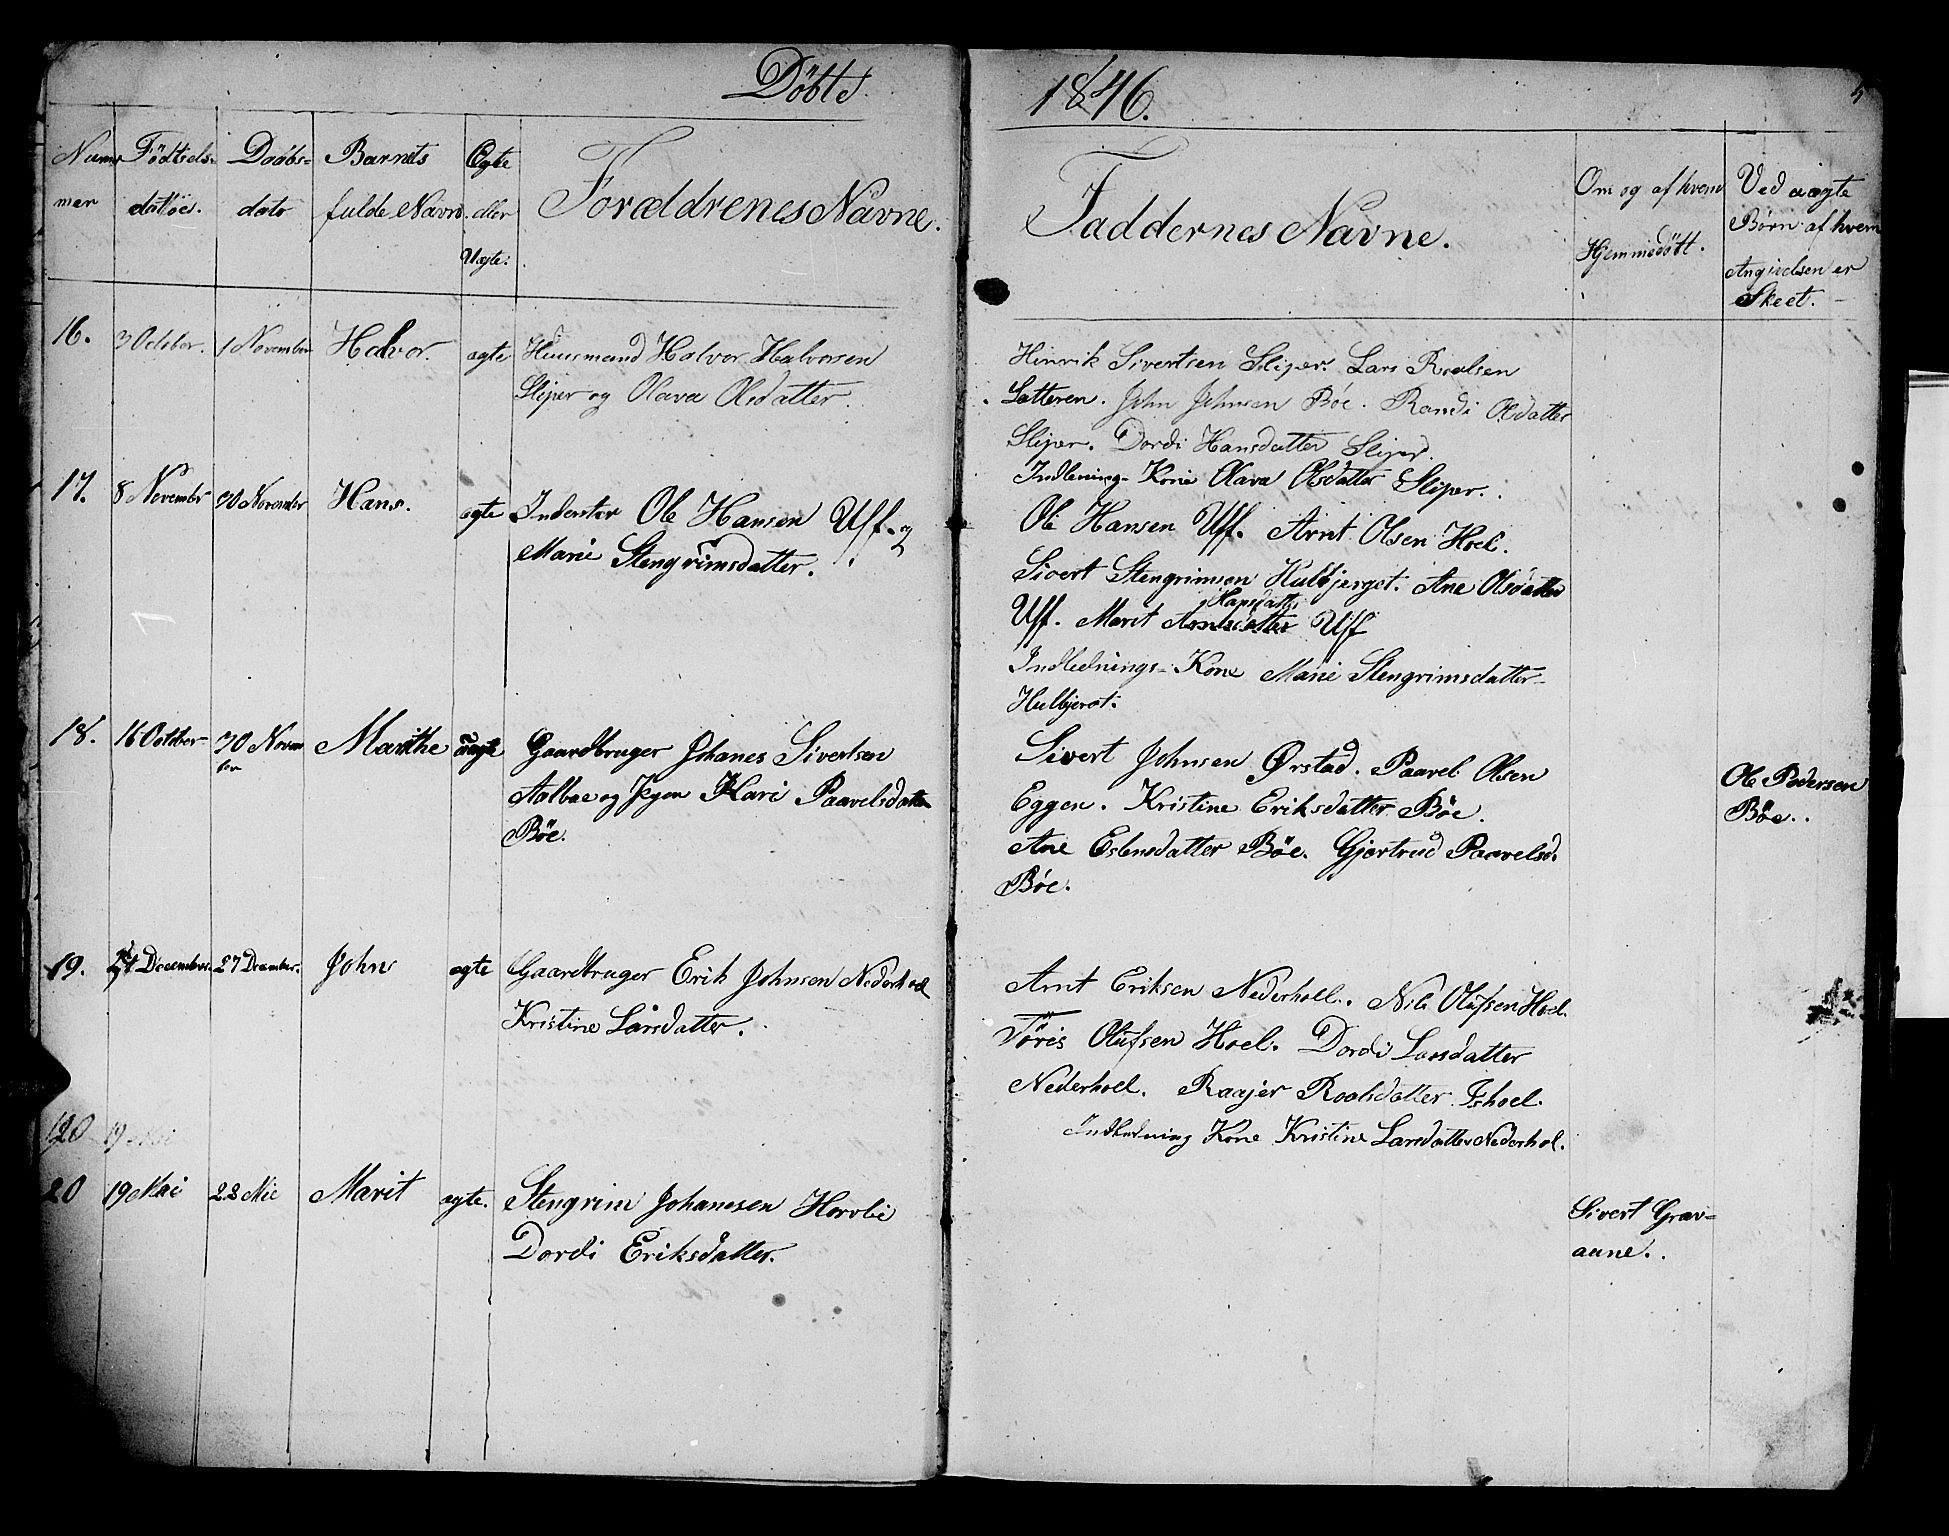 Döbte
1846.
5
Nummer
Födselsdatoe.
Daabsdato
Barnets fulde Navn.
Ægte eller Uægte.
Forældrenes Navne.
Faddernes Navne.
Om og af hvem Hjemmedöbt.
Ved uægte
Börn af hvem
Angivelsen er
Skeet.
16. 3 October. 1 November Halvor. ægte Huusmand Halvor Halvorsen
Sliper og Olava Olsdatter.
Hinrik Sivertsen Sliper. Lars
Sætteren. John Johnsen Böe. Randi Olsdatter
Sliper. Dordi Hansdatter Sliper.
Indlednings-Kone Olava Olsdatter Sliper.
17. 8 November November Hans. ægte Inderster Ole Hansen Uff. og
Marie Stengrimsdatter.
Ole Hansen Uff. Arnt Olsen Hoel.
Sivert Stengrimsen Hulbjerget. Ane Olsdatter
Hansdatter
Uff. Marit Arntsdatter Uff
Indlednings-Kone Marie Stengrimsdatter
18. 16 October 30 Novem
ber
Marithe uægte Gaardbruger Johanes Sivertsen
Aalbae og Pigen Kari Paavelsdatter
Böe.
Sivert Johnsen Ørstad. Paavel Olsen
Eggen. Kristine Eriksdatter Böe.
Ane Estensdatter Böe. Gjertrud Paavelsd.
Böe.
Ole Pedersen
Böe.
19. December. 27 December. John ægte Gaardbruger Erik Johnsen Nederhoel
Kristine Larsdatter.
Arnt Eriksen Nederhoel. Nils Olufsen Hoel.
Töris Olufsen Hoel. Dordi Larsdatter
Nederhoel. Raajer Roaldsdatter
Indledning Kone Kristine Larsdatter Nederhol.
120 19 Mai
20 19 Mai 22 Mie Marit ægte. Stengrim Johanesen Horvlie
Dordi Eriksdatter.
Sivert Grav-
aune.